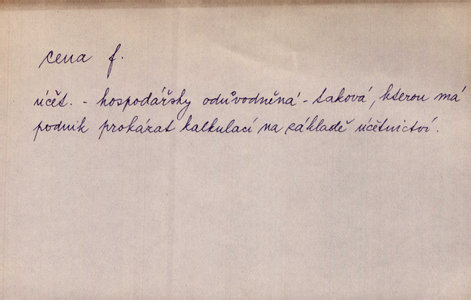 cena f.
účět. - hospodářsky odůvodněná - taková, kterou má
podnik prokázat kalkulací na základě účetnictví.